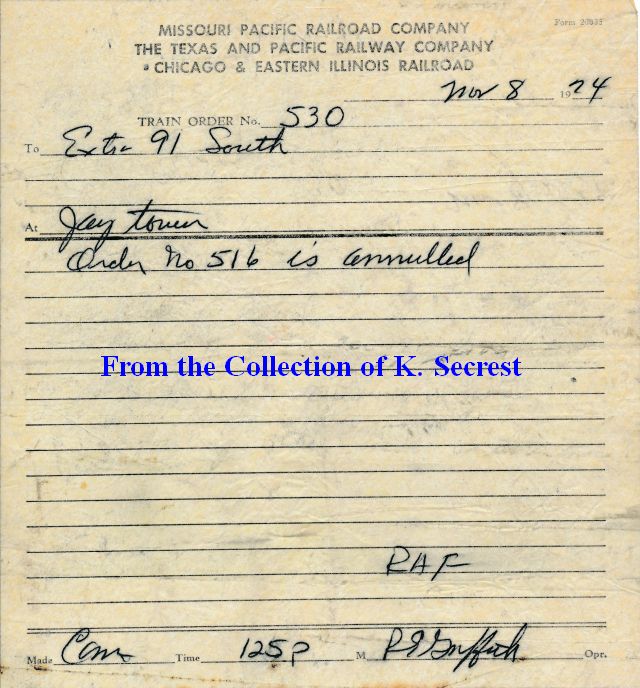 Form 20835
MISSOURI PACIFIC RAILROAD COMPANY
THE TEXAS AND PACIFIC RAILWAY COMPANY
CHICAGO & EASTERN ILLINOIS RAILROAD
Nov 8 1974
TRAIN ORDER No. 530
To Extra 91 South
At Jay tower
Order No 516 is annulled
From the Collection of K. Secrest
RAF
Made Com Time 125P M R E Griffith Opr.